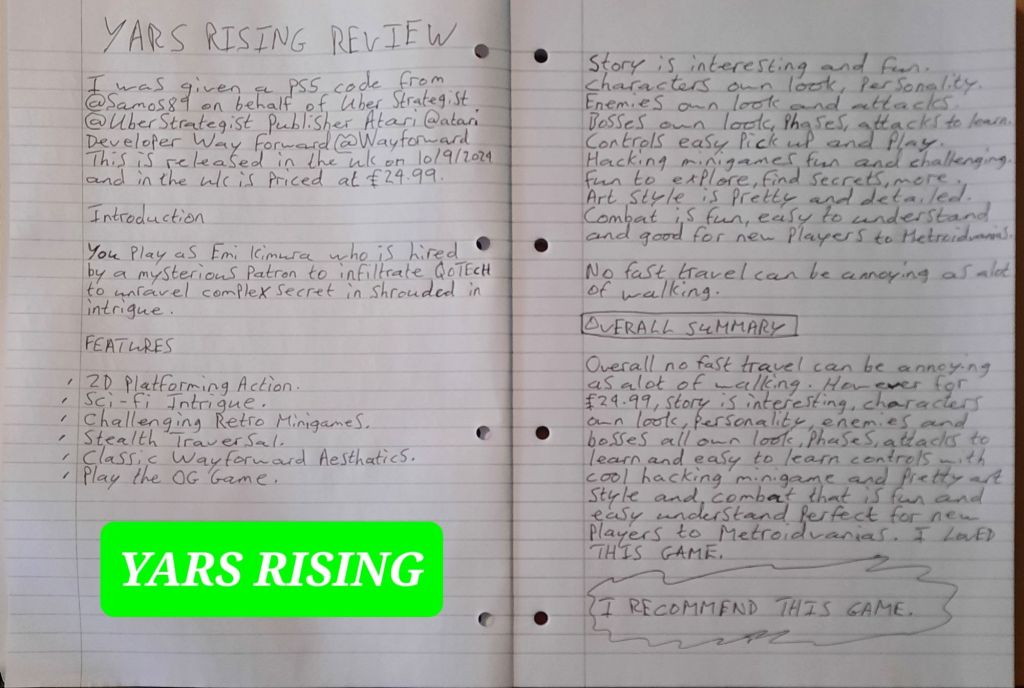 YARS RISING REVIEW
I was given a PS5 code from
@Samos89 on behalf of Uber Strategist
@UberStrategist Publisher Atari @atari
Developer Way Forward @Wayforward
This is released in the uk on 10/9/2024
and in the uk is Priced at £24.99.
Introduction
You Play as Emi Kimura who is hired
by a mysterious Patron to infiltrate QoTECH
to unravel complex secret in shrouded in
intrigue.
FEATURES
, 2D Platforming Action.
, Sci-fi Intrigue.
, Challenging Retro Minigames.
, Stealth Traversal.
, Classic Wayforward Aesthatics.
, Play the OG Game.
YARS RISING
Story is interesting and fun.
Characters own look, Personality.
Enemies own look and attacks.
Bosses own look, Phases, attacks to learn.
Controls easy Pick up and Play.
Hacking minigames fun and challenging.
Fun to explore, find secrets, more.
Art style is Pretty and detailed.
Combat is fun, easy to understand
and good for new Players to Metroidvanias.
No fast travel can be annoying as alot
of walking.
OVERALL SUMMARY
Overall no fast travel can be annoying
as alot of walking. However for
£24.99, story is interesting, characters
own look, Personality, enemies and
bosses all own look, Phases, attacks to
learn and easy to learn controls with
cool hacking minigame and Pretty art
style and, combat that is fun and
easy understand Perfect for new
Players to Metroidvanias. I LOVED
THIS GAME.
I RECOMMEND THIS GAME.